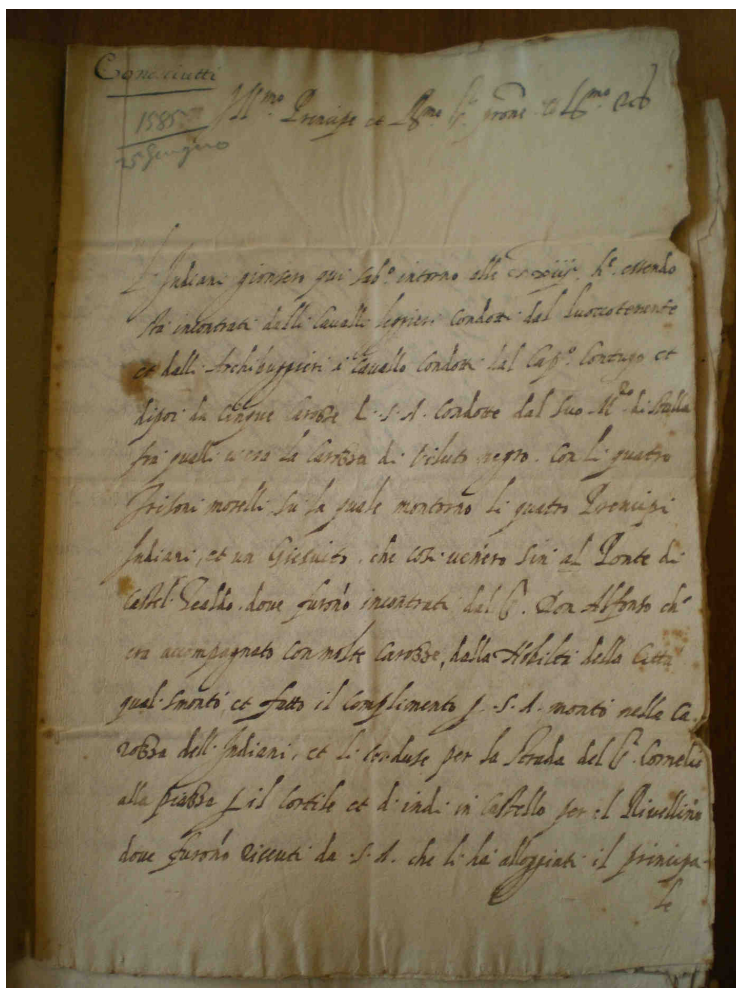 Conosciutti
1585
25 Giugno
Ill.mo Principe et R.mo S.r prone
L'Indiani gionsero qui sab.o intorno alle h.e essendo
sta incontrati dalli Cavalli leggieri condotti dal Luocotenente
et dalli Archibuggieri à Cavallo condotti dal Cap.o Contugo et
dipoi da cinque Carozze di S. A. condotte dal suo M.ro di stalla
fra quali u'era la Carozza di Veluto negro con li quattro
frisoni morelli su la quale montorno li quatro Prencipi
Indiani, et un Giesuito, che cosi uen̄ero sin' al Ponte di
Castel Tealdo, dove furon̄o incontrati dal S.r Don Alfonso ch'
era accompagnato con molte Carozze, dalla Nobiltà della Città
qual smontò, et fatto il complimento p. S. A. montò nella Ca-
rozza dell'Indiani, et li condusse per la strada del S.r Cornelio
alla piazza p il Cortile et d'indi in Castello per el Rivellino
dove furon̄o riceuti da S. A. che li ha alloggiati il principa-
le